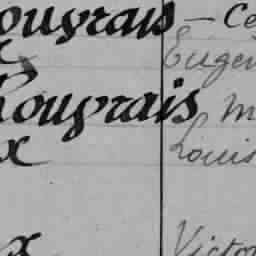 ouyrais — Ce
Eugen
Rouyrais M
x Louis
x Victo